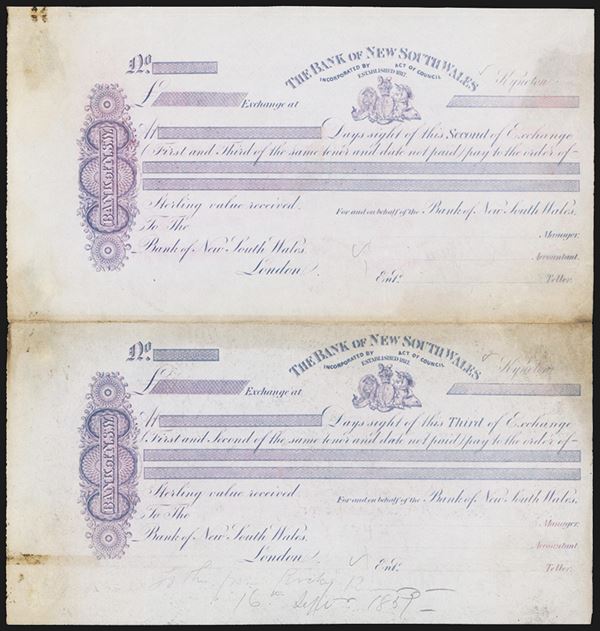 No.
THE BANK OF NEW SOUTH WALES
INCORPORATED BY ACT OF COUNCIL
ESTABLISHED 1817
Kyneton
£ Exchange at
BANK OF N.S.W.
At Days sight of this Second of Exchange
(First and Third of the same tenor and date not paid) pay to the order of
Sterling value received.
For and on behalf of the Bank of New South Wales.
To The
Manager.
Bank of New South Wales,
Accountant.
London.
Entd.
Teller.
No.
THE BANK OF NEW SOUTH WALES
INCORPORATED BY ACT OF COUNCIL
ESTABLISHED 1817
Kyneton
£ Exchange at
BANK OF N.S.W.
At Days sight of this Third of Exchange
(First and Second of the same tenor and date not paid) pay to the order of
Sterling value received.
For and on behalf of the Bank of New South Wales.
To The
Manager.
Bank of New South Wales,
Accountant.
London.
Entd.
Teller.
16th Septr 1859